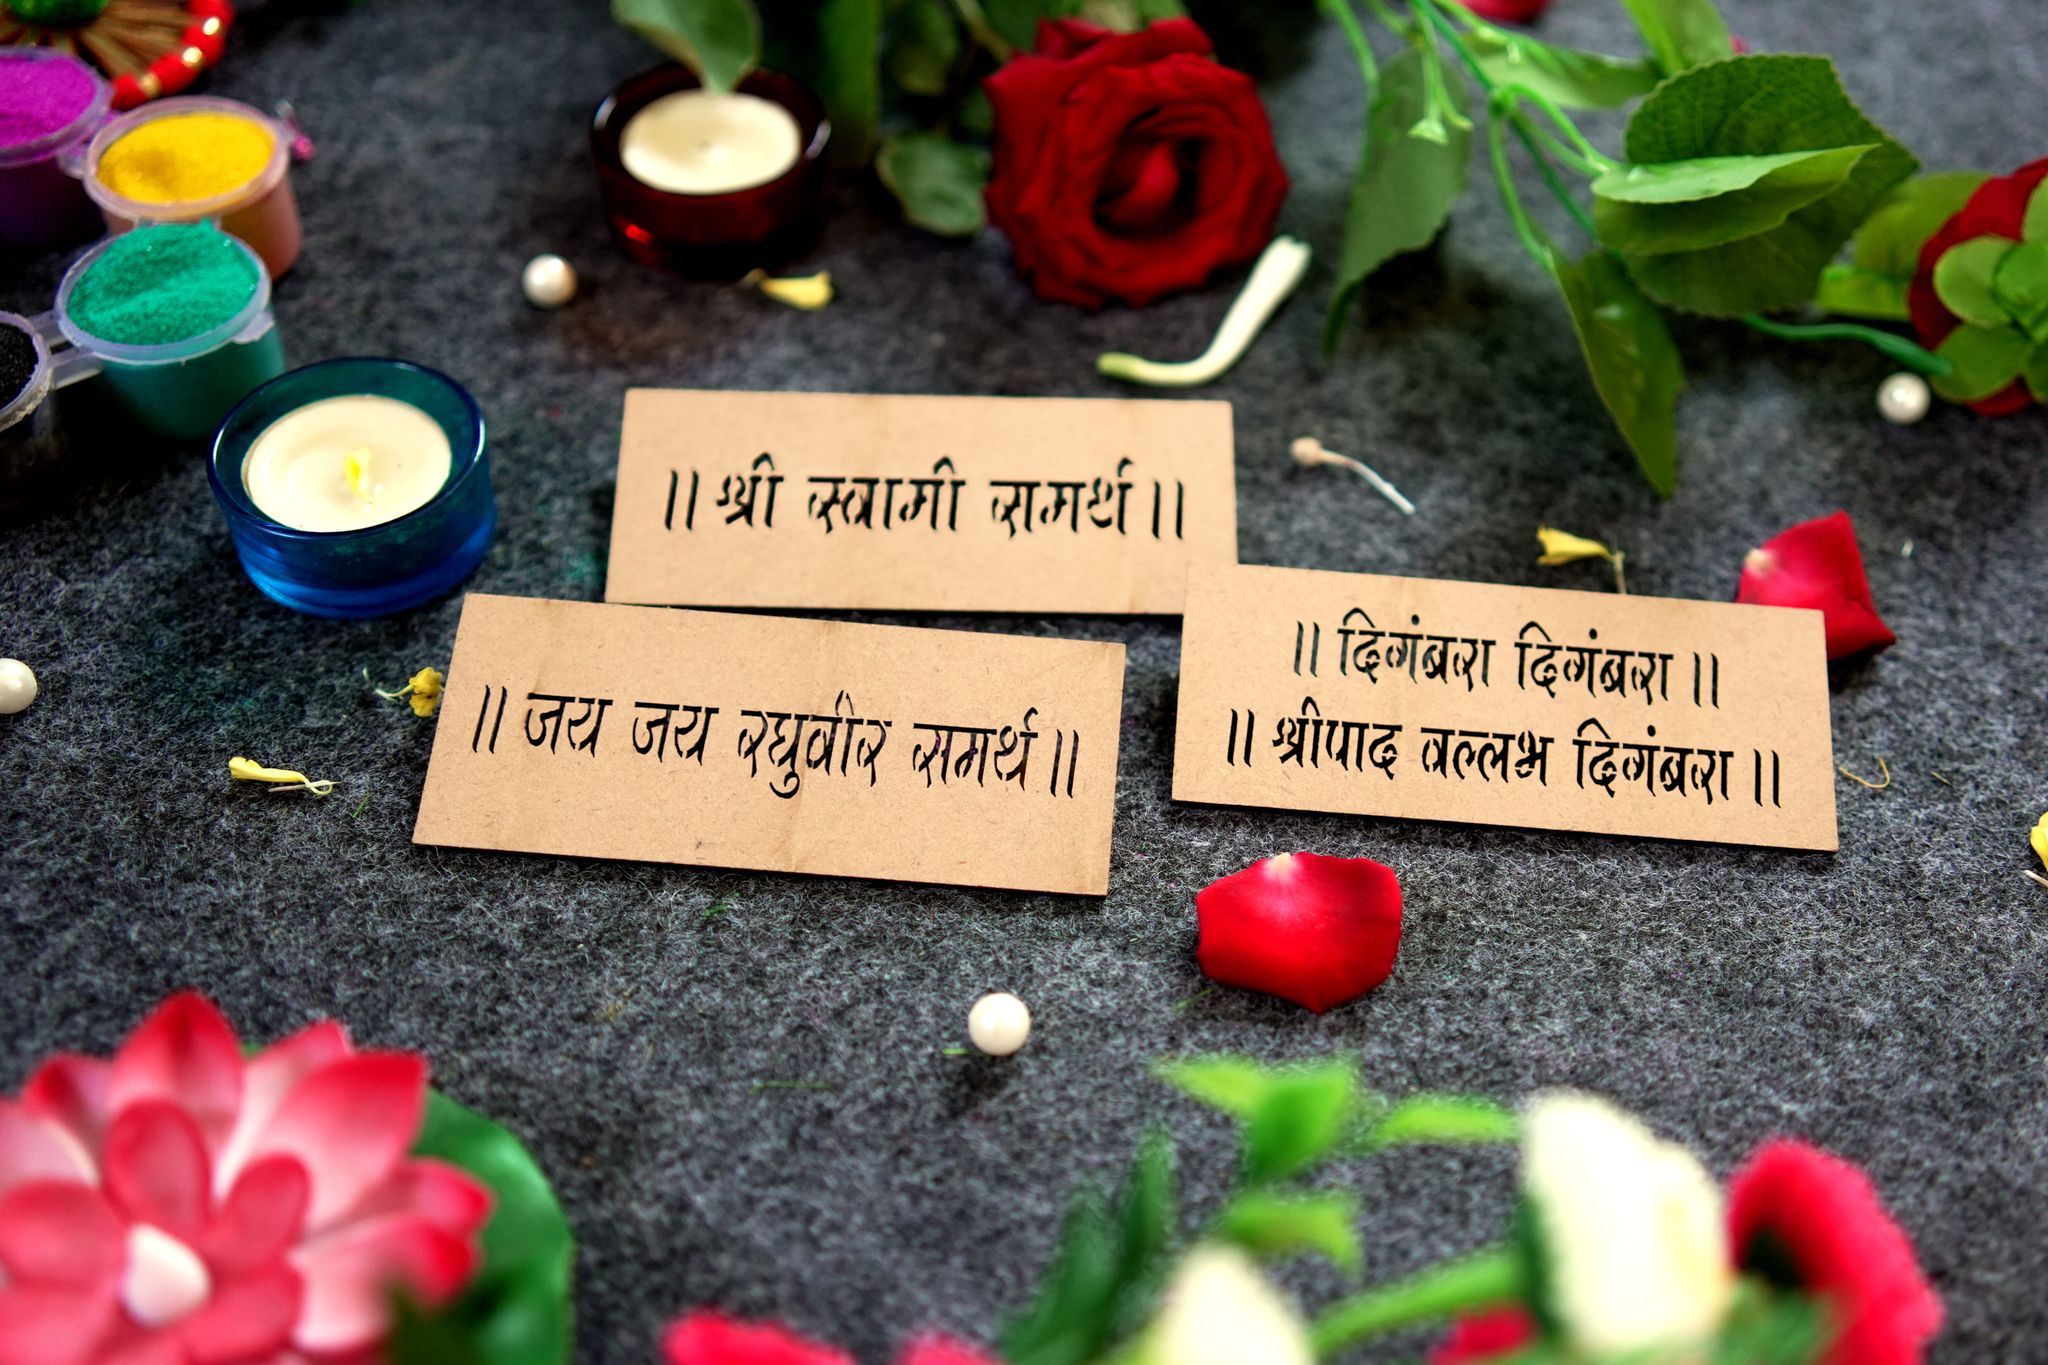 ॥ श्री स्वामी समर्थ ॥
॥ जय जय रघुवीर समर्थ ॥
॥ दिगंबरा दिगंबरा ॥
॥ श्रीपाद वल्लभ दिगंबरा ॥